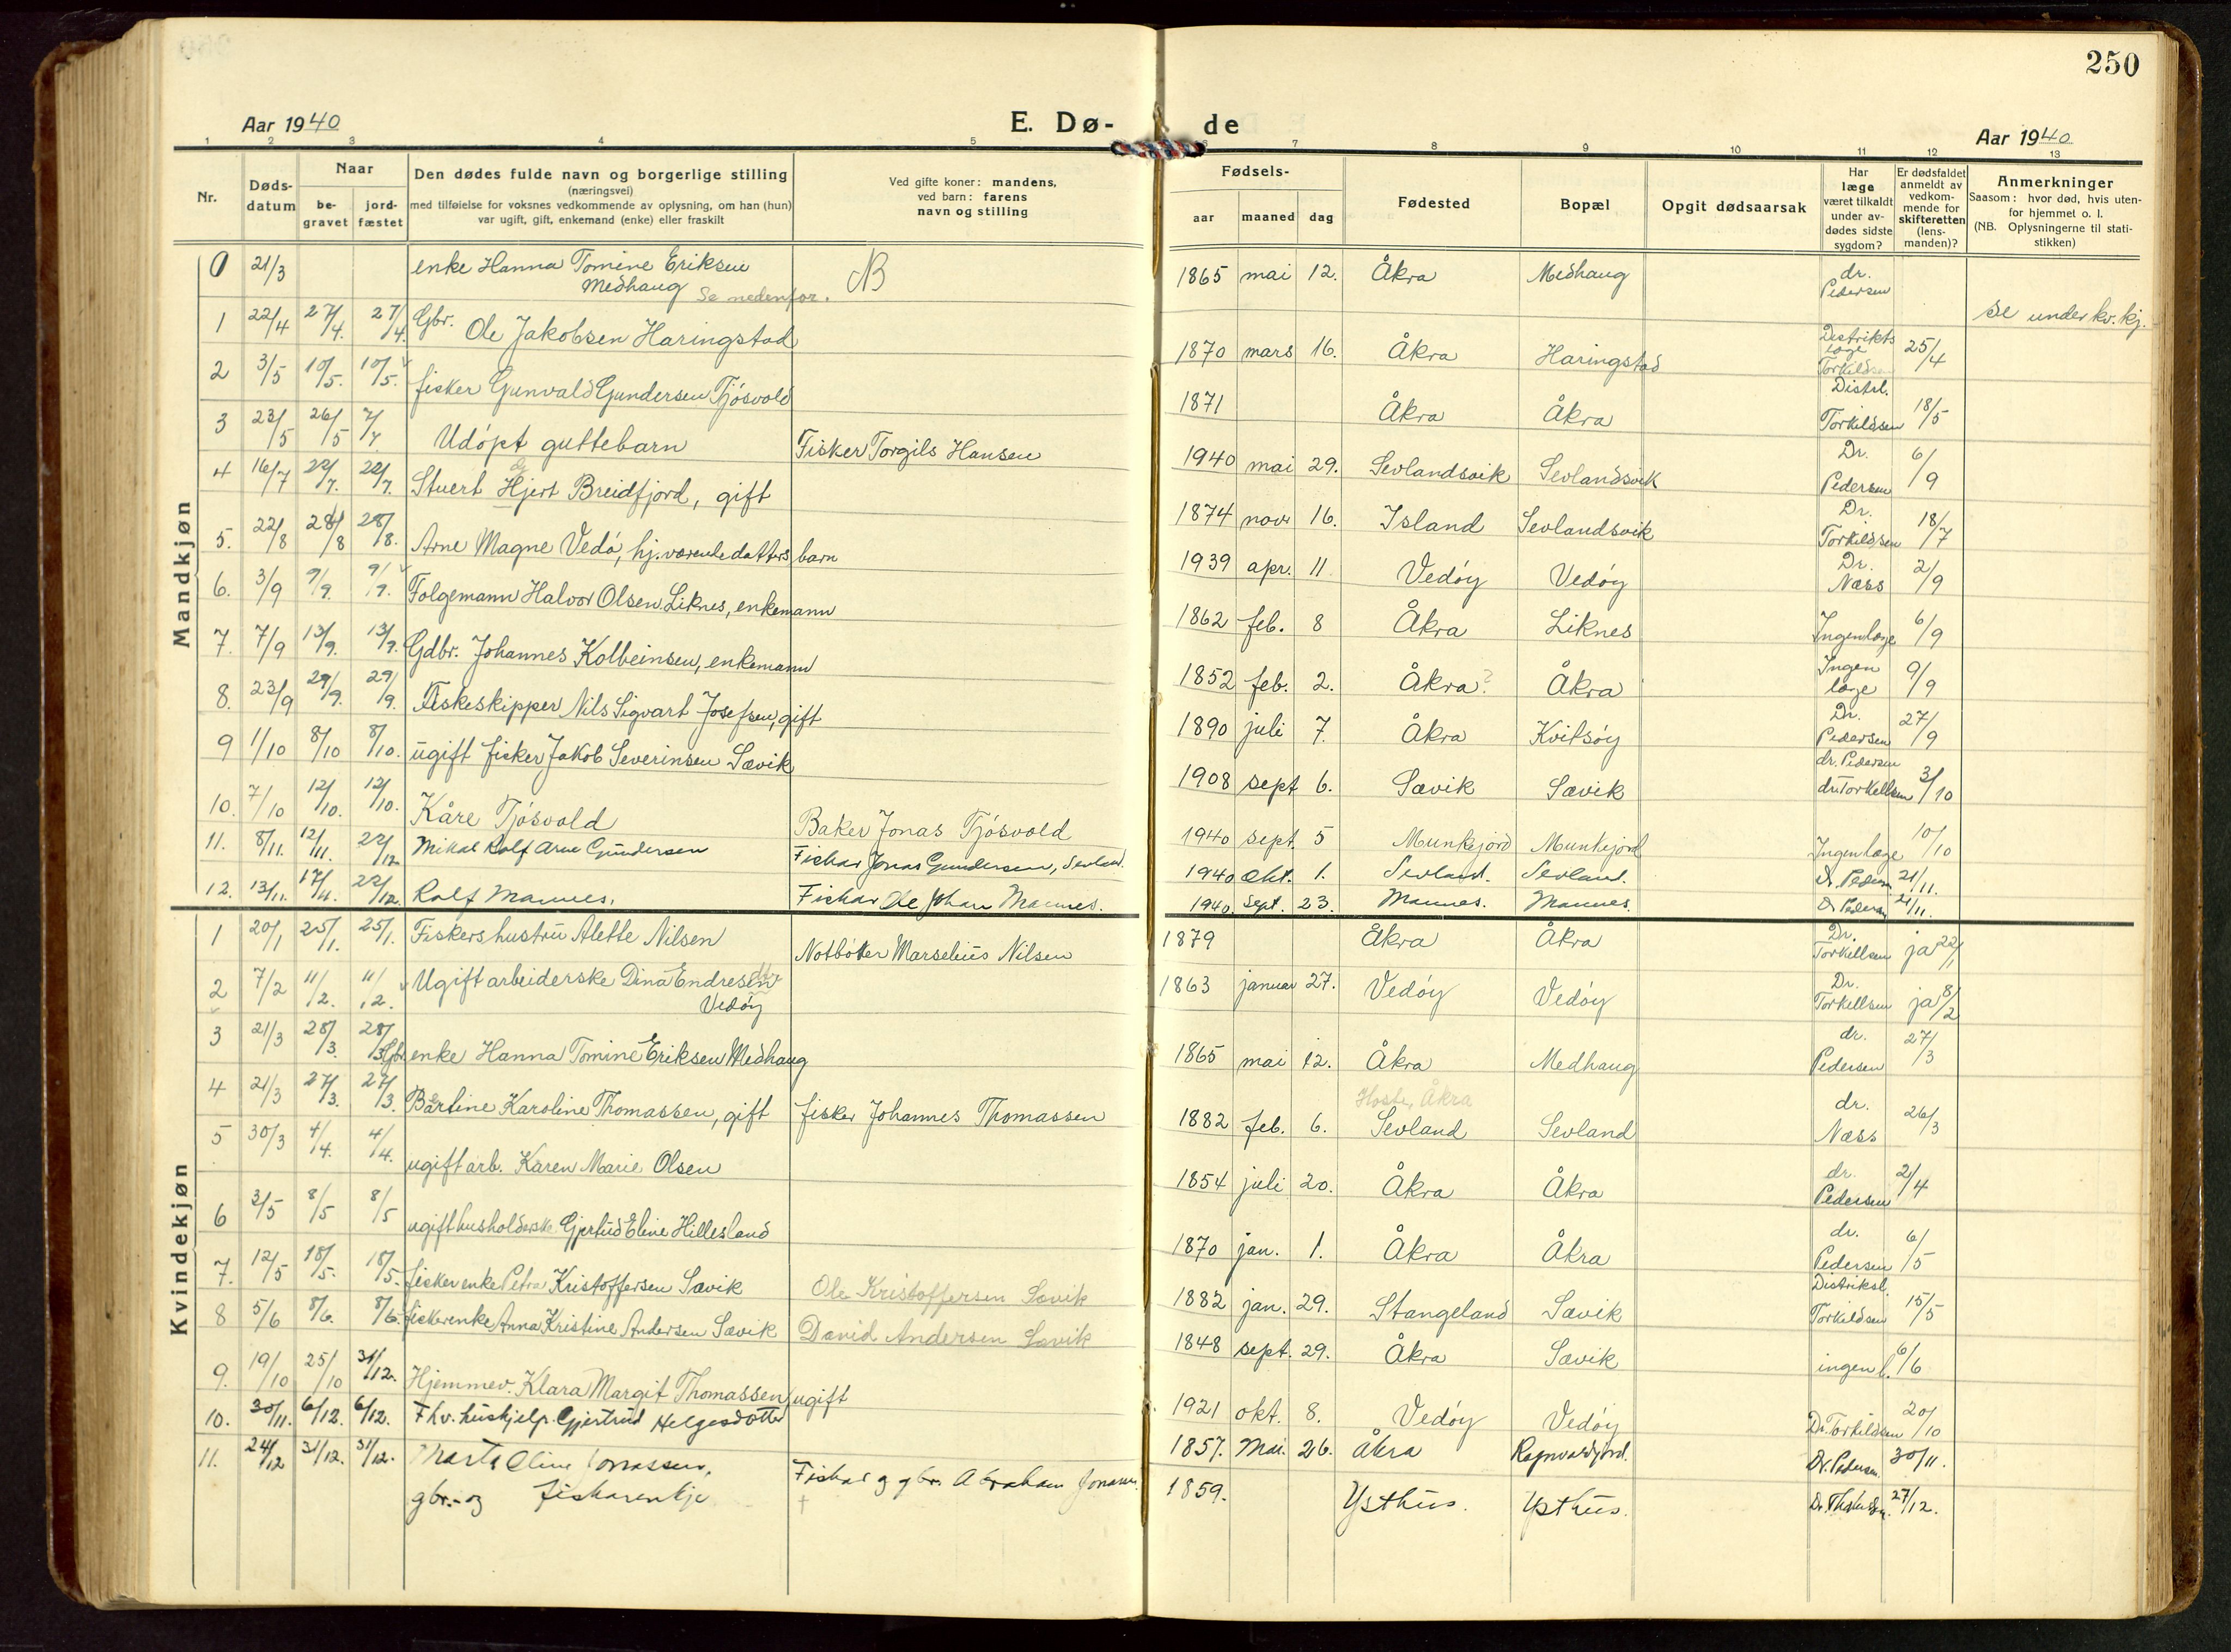 250
Aar 1940
E. Dø-
de
Aar 1940
1 2 3 4 5 7 8 9 10 11 12 13
Nr.
Døds-
datum
Naar
be-
gravet
jord-
fæstet
Den dødes fulde navn og borgerlige stilling
(næringsvei)
med tilføielse for voksnes vedkommende av oplysning, om han (hun)
var ugift, gift, enkemand (enke) eller fraskilt
Ved gifte koner: mandens,
ved barn: farens
navn og stilling
Fødsels-
aar
maaned
dag
Fødested
Bopæl
Opgit dødsaarsak
Har
læge
været tilkaldt
under av-
dødes sidste
sygdom?
Er dødsfaldet
anmeldt av
vedkom-
mende for
skifteretten
(lens-
manden)?
Anmerkninger
Saasom: hvor død, hvis uten-
for hjemmet o. l.
(NB. Oplysningerne til stati-
stikken)
Mandkjøn
0 21/3 enke Hanna Tomine Eriksen NB 1865 mai 12. Åkra Medhaug dr.
Medhaug Se nedenfor. Pedersen
se under kv. kj.
1 22/4 27/4. 27/4. Gbr. Ole Jakobsen Haringstad 1870 mars 16. Åkra Haringstad Distrikts
læge
Torkildsen 25/4
2 3/5 10/5. 10/5. fisker Gunvald Gundersen Tjøsvold 1871 Åkra Åkra Distrl.
Torkildsen 18/5
3 23/5 26/5 7/7 Udøpt guttebarn Fisker Torgils Hansen 1940 mai 29. Sevlandsvik Sevlandsvik Dr.
Pedersen 6/9
4 16/7 22/7. 22/7. Stuert Hjert Breidfjord, gift 1874 nov 16. Island Sevlandsvik Dr.
Torkildsen 18/7
5. 22/8 28/8 28/8. Arne Magne Vedø, hj.værende datters barn 1939 apr. 11 Vedøy Vedøy Dr.
Næss 2/9
6. 3/9 9/9. 9/9. Folgemann Halvor Olsen Liknes, enkemann 1862 feb. 8 Åkra Liknes Ingen læge 6/9
7. 7/9 13/9. 13/9. Gdbr. Johannes Kolbeinsen, enkemann 1852 feb. 2. Åkra? Åkra Ingen
læge 9/9
8. 23/9 29/9. 29/9. Fiskeskipper Nils Sigvart Josefsen, gift 1890 juli 7. Åkra Kvitsøy Dr.
Pedersen 27/9
9 1/10 8/10 8/10. ugift fisker Jakob Severinsen Sævik 1908 sept 6. Sævik Sævik dr. Pedersen
dr. Torkellsen 3/10
10. 7/10 12/10. 12/10. Kåre Tjøsvold Baker Jonas Tjøsvold 1940 sept. 5 Munkejord Munkejord Ingen læge 10/10
11. 8/11. 12/11. 22/12 Mikal Rolf Arne Gundersen Fiskar Jonas Gundersen, Sevland. 1940 okt. 1. Sevland. Sevland. dr. Pedersen 21/11.
12. 13/11. 17/11. 22/12. Rolf Mannes. Fiskar Ole Johan Mannes. 1940 sept. 23. Mannes. Mannes. Dr Pedersen 21/11.
Kvindekjøn
1 20/1 25/1. 25/1. Fiskers hustru Alette Nilsen Notbøter Marselius Nilsen 1879 Åkra Åkra Dr.
Torkellsen ja 22/1
2 7/2 11/2. 11/2. Ugift arbeiderske Dina Endresen dtr 1863 januar 27. Vedøy Vedøy Dr.
Vedøy Torkellsen ja 8/2
3 21/3 28/3. 28/3 Gbr. enke Hanna Tomine Eriksen Medhaug 1865 mai 12. Åkra Medhaug dr.
Pedersen 27/3
4 21/3 27/3. 27/3. Bertine Karoline Thomassen, gift fisker Johannes Thomassen 1882 feb. 6. Hoste, Åkra
Sevland Sevland dr.
Næss 26/3
5 30/3 4/4. 4/4. ugift arb. Karen Marie Olsen 1854 juli 20. Åkra Åkra dr.
Pedersen 2/4
6 3/5 8/5 8/5 ugift husholderske Gjertud Eline Hillesland 1870 jan. 1. Åkra Åkra dr.
Pedersen 6/5
7. 12/5 18/5. 18/5. fisker enke Petra Kristoffersen Sævik Ole Kristoffersen Sævik 1882 jan. 29. Stangeland Sævik Distriksl.
Torkildsen 15/5
8 5/6 8/6. 8/6. fiskerenke Anna Kristine Andersen Sævik David Andersen Sævik 1848 sept. 29. Åkra Sævik ingen l. 6/6
9. 19/10 25/10 31/12. Hjemmev. Klara Margit Thomassen, ugift 1921 okt. 8. Vedøy Vedøy Dr. Torkildsen 20/10
10. 30/11. 6/12. 6/12. Fhv. hushjelp. Gjertrud Helgesdotter 1857. Mai. 26. Åkra Dr. Pedersen. 30/11.
11. 24/12 31/12. 31/12. Marta Oline Jonassen, Fiskar og gbr. Abraham Jonassen. 1859. Ysthus. Ysthus. 27/12.
gbr.- og fiskarenkje †